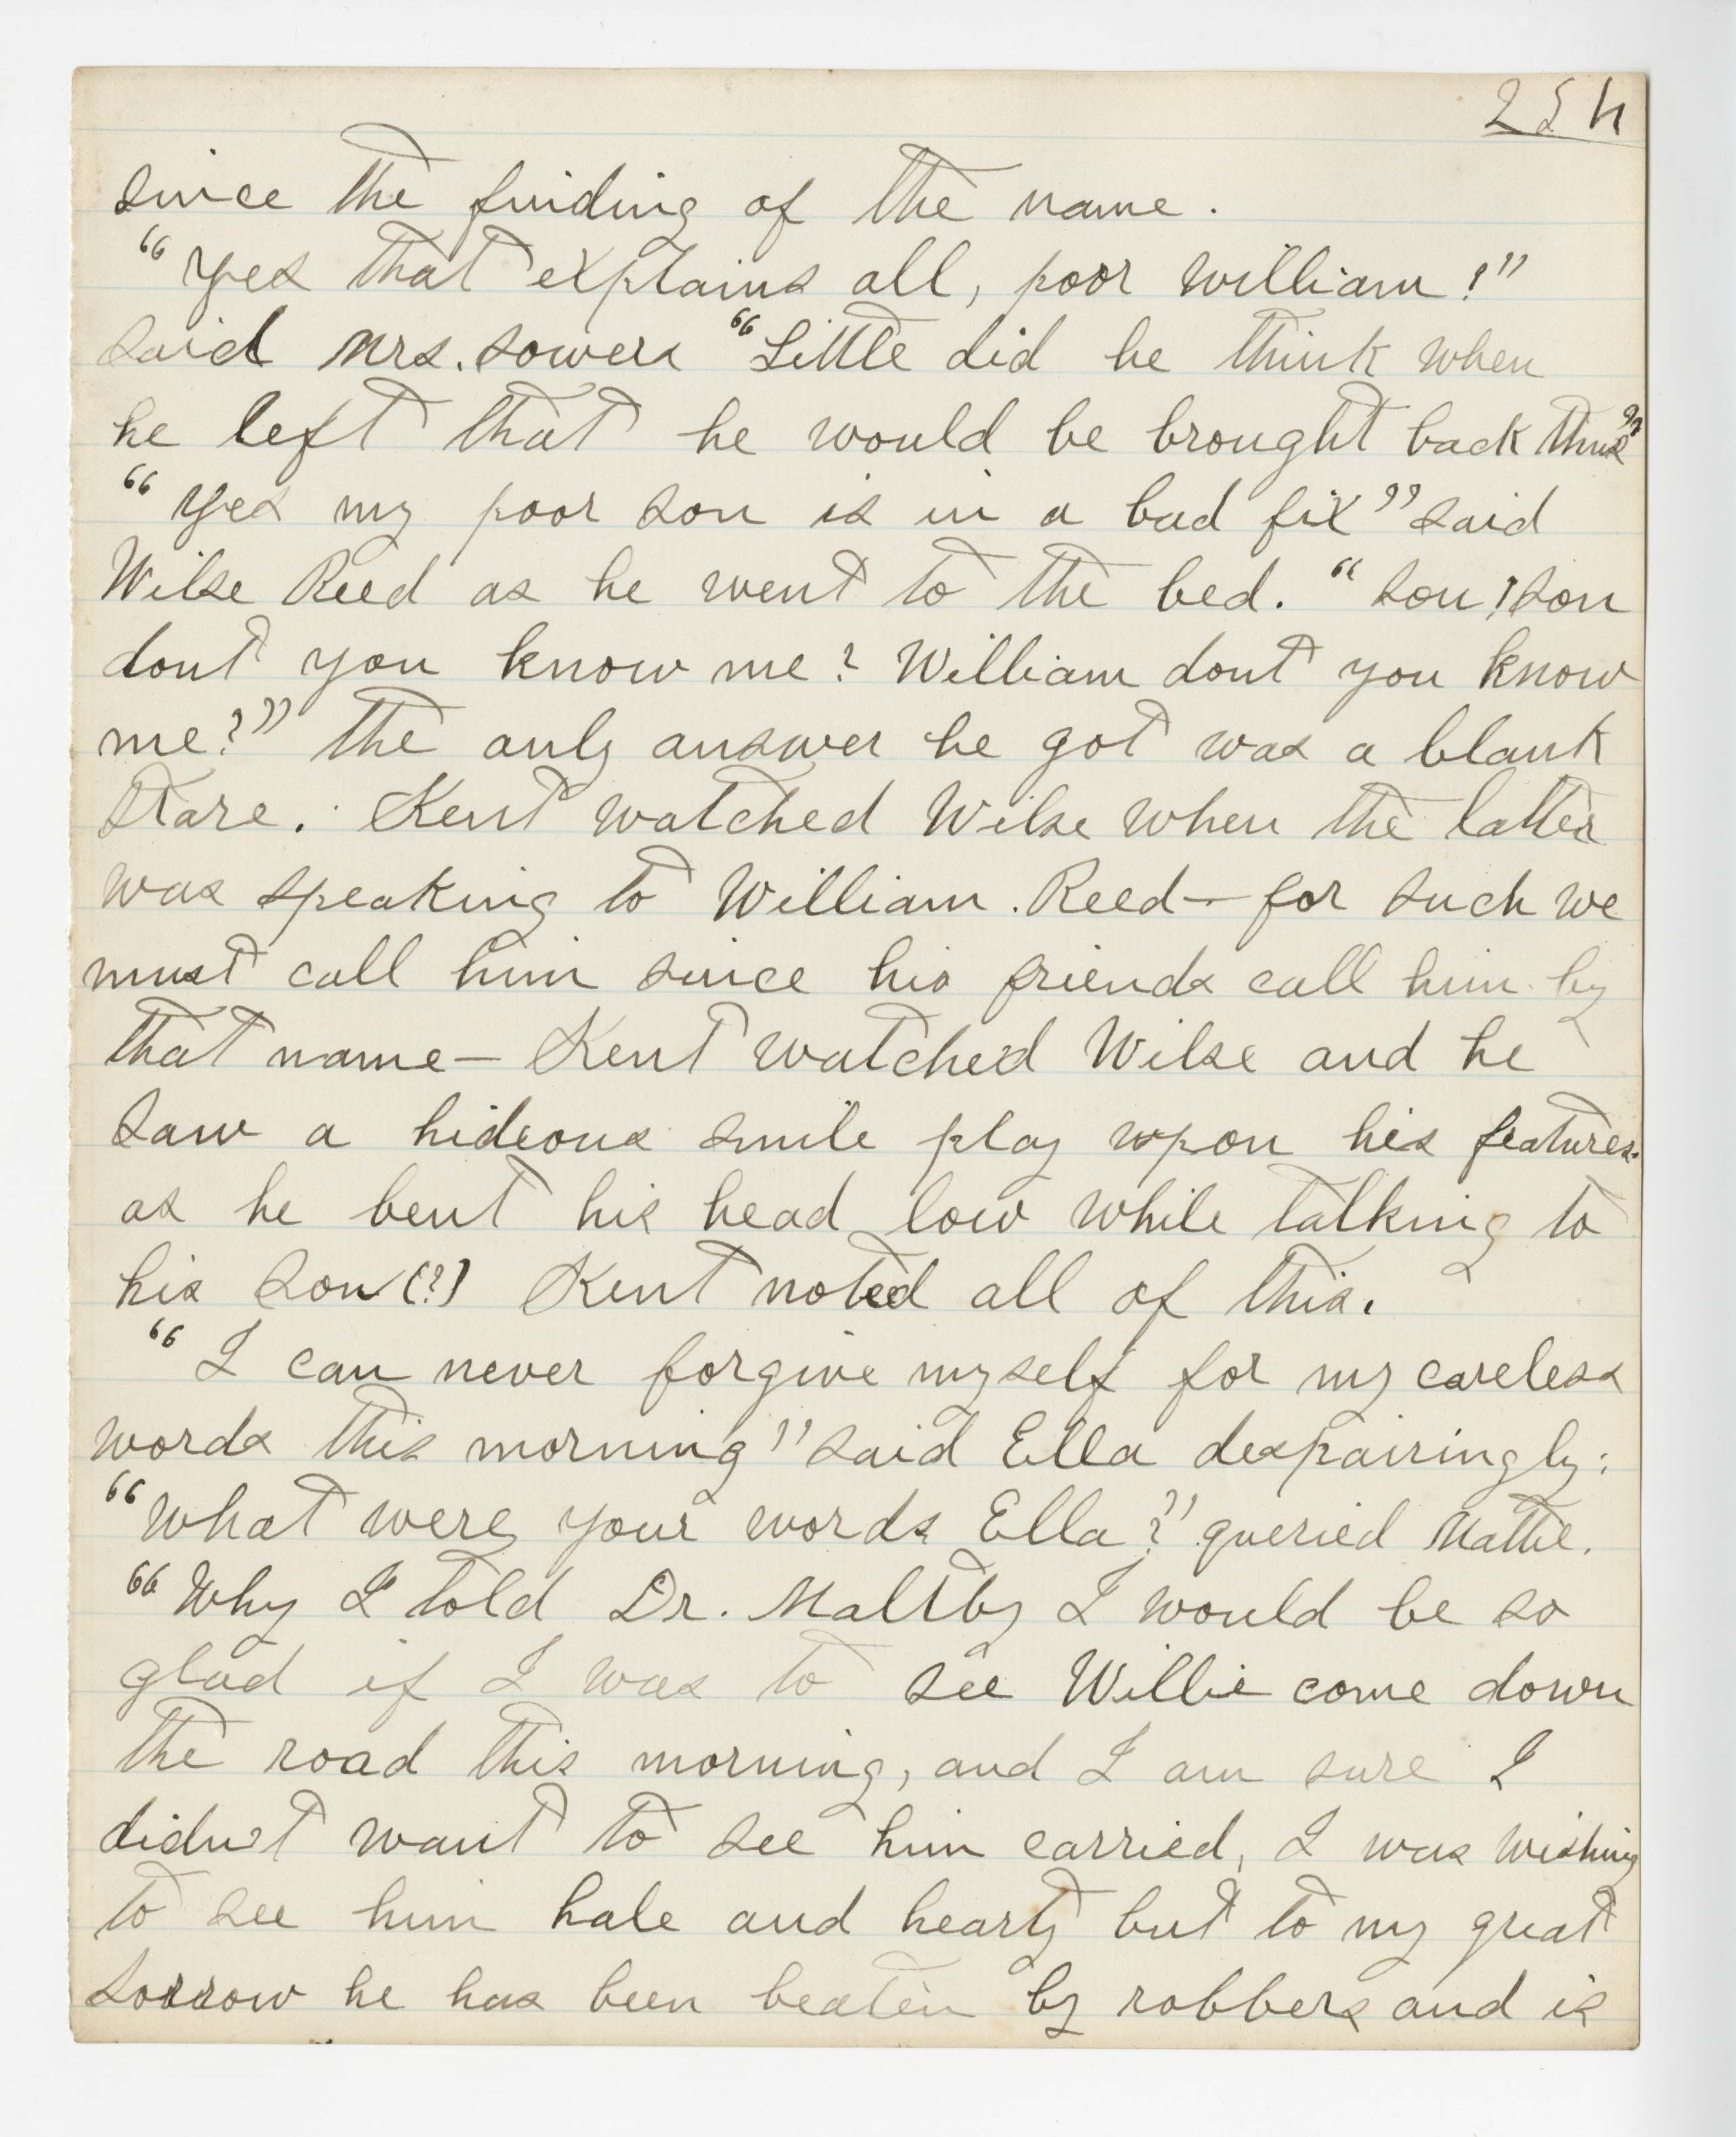 254
since the finding of the name.
"Yes that explains all, poor William!"
said Mrs. Sowers "Little did he think when
he left that he would be brought back thus"
"Yes my poor son is in a bad fix" said
Wilse Reed as he went to the bed. "Son, son
dont you know me? William dont you know
me?" The only answer he got was a blank
stare. Kent watched Wilse when the latter
was speaking to William Reed— for such we
must call him since his friends call him by
that name— Kent watched Wilse and he
saw a hideous smile play upon his features.
as he bent his head low while talking to
his son(?) Kent noted all of this.
"I can never forgive myself for my careless
words this morning" said Ella despairingly:
"What were your words Ella?" queried Mattie.
"Why I told Dr. Maltby I would be so
glad if I was to see Willie come down
the road this morning, and I am sure I
didn't want to see him carried, I was wishing
to see him hale and hearty but to my great
sorrow he has been beaten by robbers and is